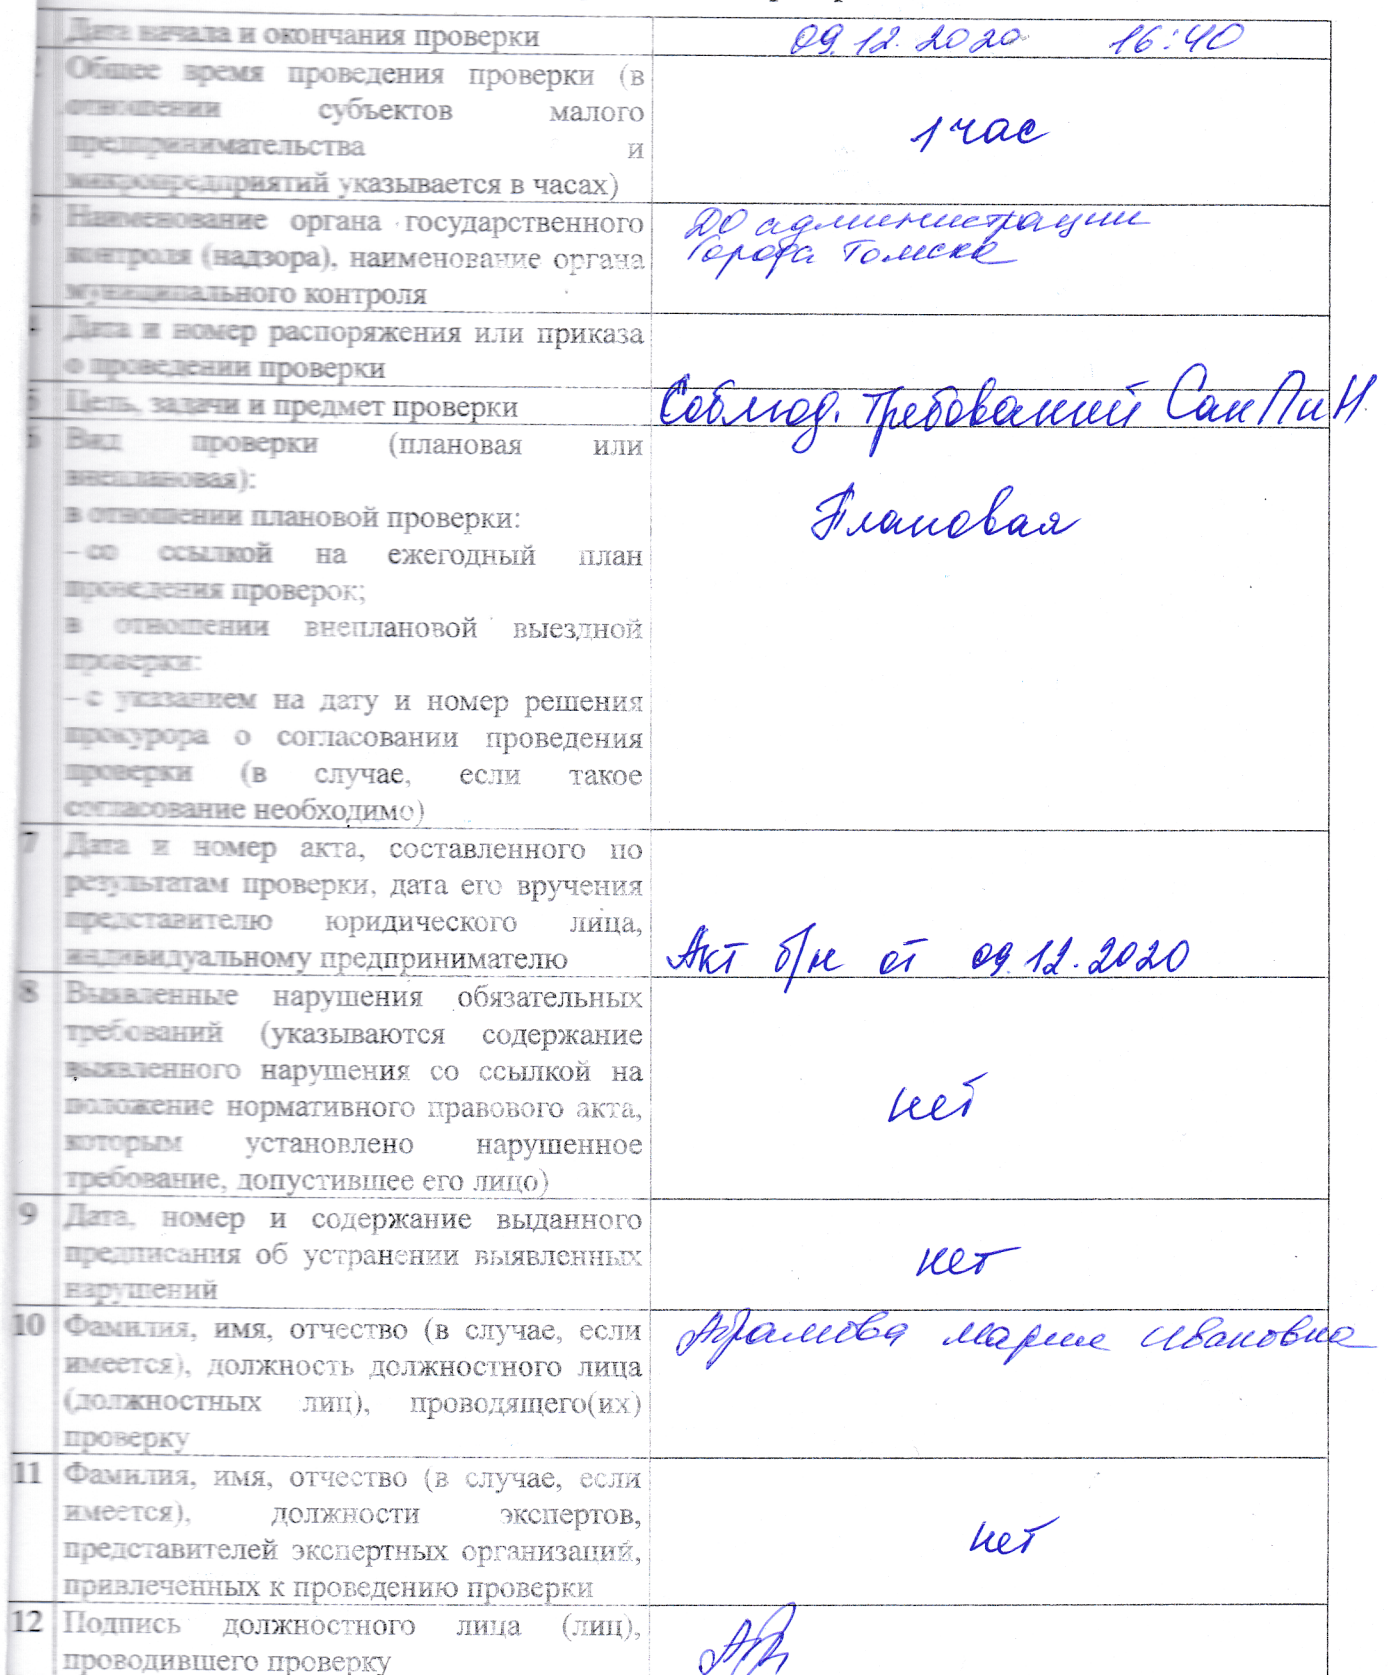 Дата начала и окончания проверки 09.12.2020 16:40
Общее время проведения проверки (в
отношении субъектов малого
предпринимательства и
микропредприятий указывается в часах)
1 час
Наименование органа государственного
контроля (надзора), наименование органа
муниципального контроля
ДО администрации
Города Томска
Дата и номер распоряжения или приказа
о проведении проверки
5 Цель, задачи и предмет проверки Соблюд. требований СанПиН
6 Вид проверки (плановая или
внеплановая):
в отношении плановой проверки:
– со ссылкой на ежегодный план
проведения проверок;
в отношении внеплановой выездной
проверки:
– с указанием на дату и номер решения
прокурора о согласовании проведения
проверки (в случае, если такое
согласование необходимо)
Плановая
7 Дата и номер акта, составленного по
результатам проверки, дата его вручения
представителю юридического лица,
индивидуальному предпринимателю
Акт б/н от 09.12.2020
8 Выявленные нарушения обязательных
требований (указываются содержание
выявленного нарушения со ссылкой на
положение нормативного правового акта,
которым установлено нарушенное
требование, допустившее его лицо)
нет
9 Дата, номер и содержание выданного
предписания об устранении выявленных
нарушений
нет
10 Фамилия, имя, отчество (в случае, если
имеется), должность должностного лица
(должностных лиц), проводящего(их)
проверку
Абрамова Мария Ивановна
11 Фамилия, имя, отчество (в случае, если
имеется), должности экспертов,
представителей экспертных организаций,
привлеченных к проведению проверки
нет
12 Подпись должностного лица (лиц),
проводившего проверку